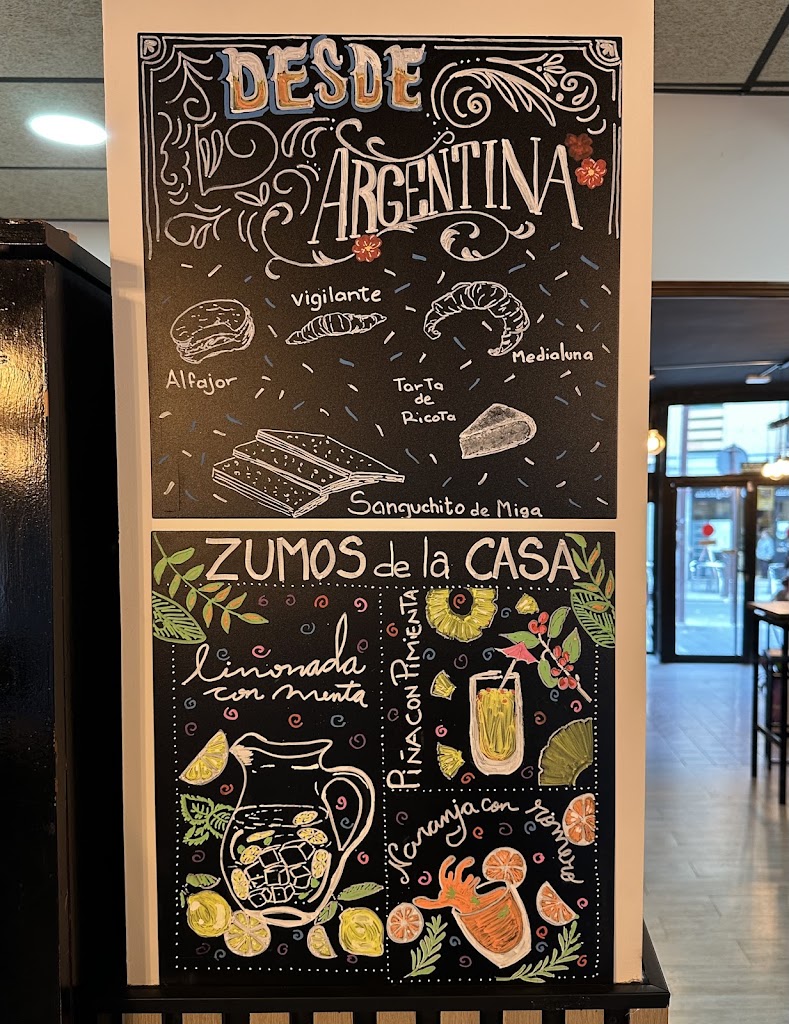 DESDE
ARGENTINA
Vigilante
Alfajor
Medialuna
Tarta
de
Ricota
Sanguchito de Miga
ZUMOS de la CASA
limonada
con menta
PIÑA CON PIMIENTA
Naranja con romero